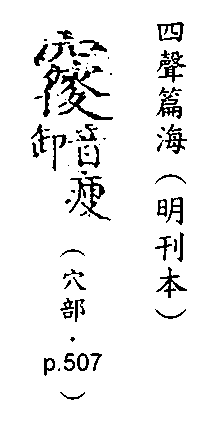 四聲篇海（明刊本）
音瘦
卸
（穴部．p.507）